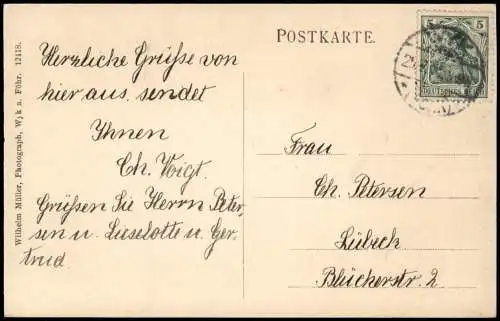 POSTKARTE.
5 5
DEUTSCHES REICH
Herzliche Grüsse von
hier aus sendet
Ihnen
Ch. Voigt.
Grüssen Sie Herrn Peter-
sen u. Lieselotte u. Ger-
trud
Frau
Ch. Petersen
Lübeck
Blücherstr. 2
Wilhelm Müller, Photograph, Wyk a. Föhr. 12478.